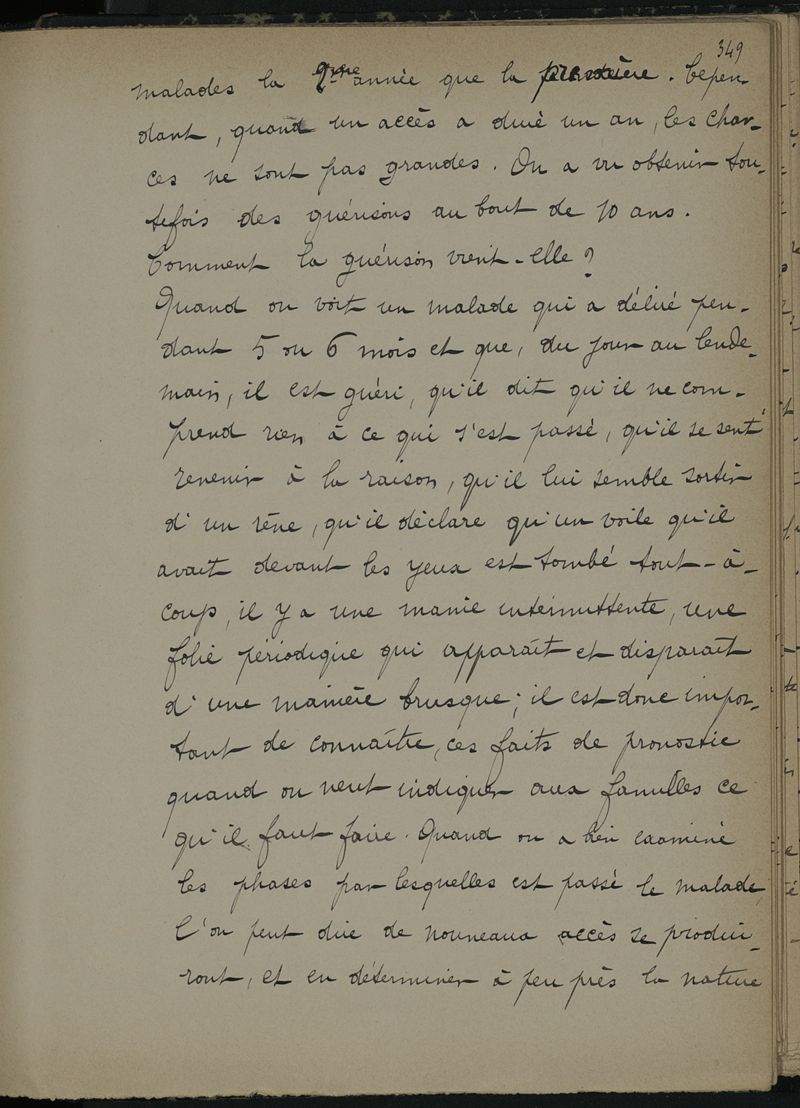 349
malades la 2ème année que la première. Cepen-
dant, quand un accès a duré un an, les chan-
ces ne sont pas grandes. On a vu obtenir tou-
tefois des guérisons au bout de 10 ans.
Comment la guérison vient-elle?
Quand on voit un malade qui a déliré pen-
dant 5 ou 6 mois et que, du jour au lende-
main, il est guéri, qu'il dit qu'il ne com-
prend rien à ce qui s'est passé, qu'il se sent
revenir à la raison, qu'il lui semble sortir
d'un rêve, qu'il déclare qu'un voile qu'il
avait devant les yeux est tombé tout-à-
coup, il y a une manie intermittente, une
folie périodique qui apparaît et disparaît
d'une manière brusque; il est donc impor-
tant de connaître, ces faits de pronostic
quand on veut indiquer aux familles ce
qu'il faut faire. Quand on a bien examiné
les phases par lesquelles est passé le malade,
l'on peut dire de nouveaux accès se produi-
ront, et en déterminer à peu près la nature